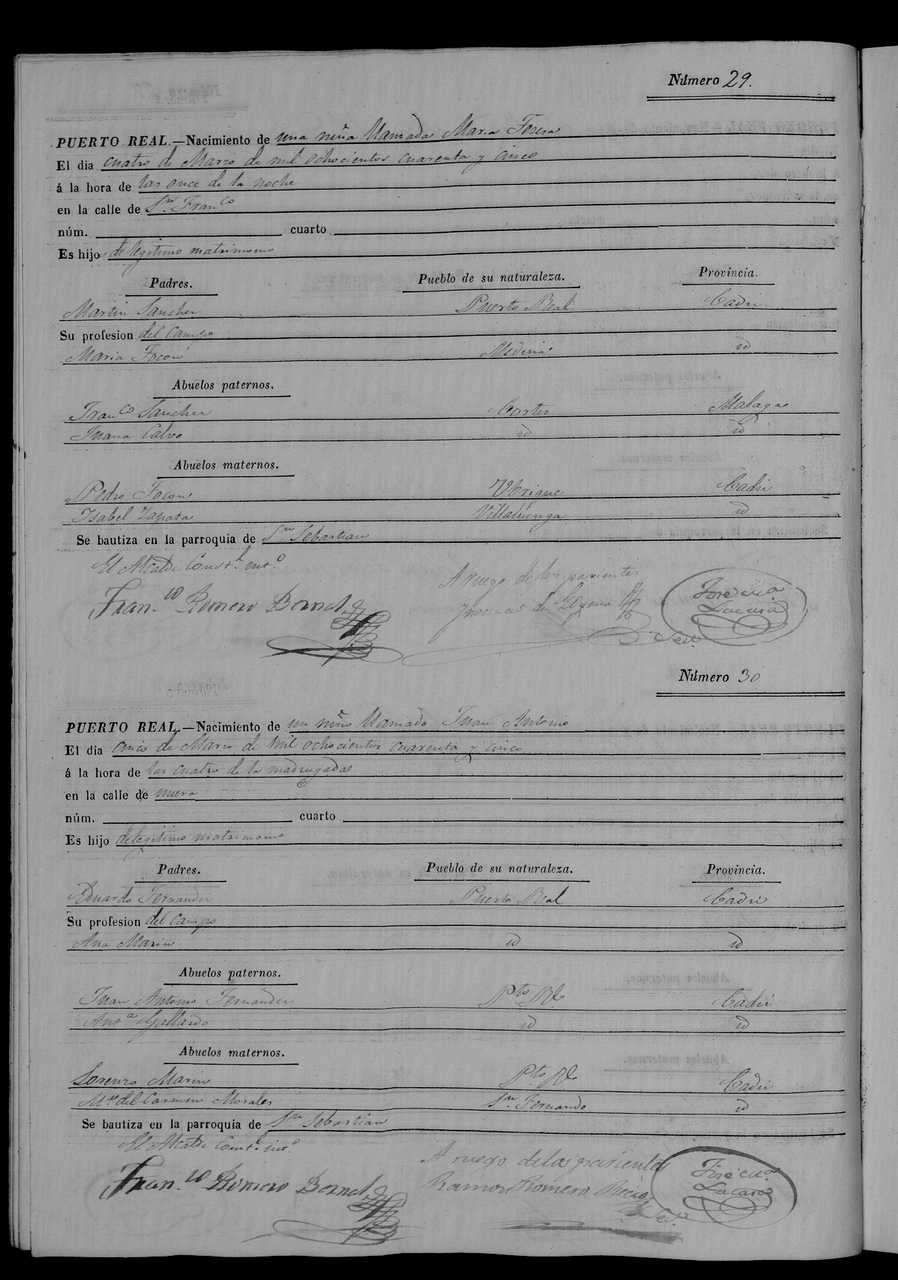 Número 29.
PUERTO REAL.—Nacimiento de una niña llamada Maria Teresa
El dia cuatro de Marzo de mil ochocientos cuarenta y cinco
á la hora de las once de la noche
en la calle de Sn. Franco
núm. cuarto
Es hijo de legitimo matrimonio
Padres. Pueblo de su naturaleza. Provincia.
Martin Sanchez Puerto Real Cadiz
Su profesion del Campo
Maria Medina id
Abuelos paternos.
Franco Sanchez Cortes Malaga
Juana Calvo id id
Abuelos maternos.
Pedro Ubrique Cadiz
Isabel Zapata Villaluenga id
Se bautiza en la parroquia de Sn Sebastian
El Alcalde Constl. int.o
Franco Romero Bernal
A ruego de los parientes
José
Srio.
Número 30
PUERTO REAL.—Nacimiento de un niño llamado Juan Antonio
El dia once de Marzo de mil ochocientos cuarenta y cinco
á la hora de las cuatro de la madrugada
en la calle de nueva
núm. cuarto
Es hijo de legitimo matrimonio
Padres. Pueblo de su naturaleza. Provincia.
Eduardo Fernandez Puerto Real Cadiz
Su profesion del Campo
Ana Marin id id
Abuelos paternos.
Juan Antonio Fernandez Pto Rl Cadiz
Ana Gallardo id id
Abuelos maternos.
Lorenzo Marin Pto Rl Cadiz
Ma. del Carmen Morales Sn Fernando id
Se bautiza en la parroquia de Sn Sebastian
El Alcalde Constl. int.o
Franco Romero Bernal
A ruego de los parientes
Ramon Romero
José